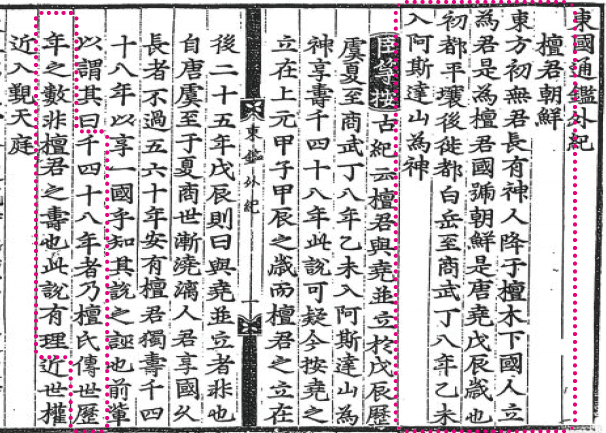 東國通鑑外紀
檀君朝鮮
東方初無君長有神人降于檀木下國人立
為君是為檀君國號朝鮮是唐堯戊辰歲也
初都平壤後徙都白岳至商武丁八年乙未
入阿斯達山為神
臣等按古紀云檀君與堯並立於戊辰歷
虞夏至商武丁八年乙未入阿斯達山為
神享壽千四十八年此說可疑今按堯之
立在上元甲子甲辰之歲而檀君之立在
東鑑外紀
一
後二十五年戊辰則曰與堯並立者非也
自唐虞至于夏商世漸澆漓人君享國久
長者不過五六十年安有檀君獨壽千四
十八年以享一國乎知其說之誣也前輩
以謂其曰千四十八年者乃檀氏傳世歷
年之數非檀君之壽也此說有理近世權
近入覲天庭